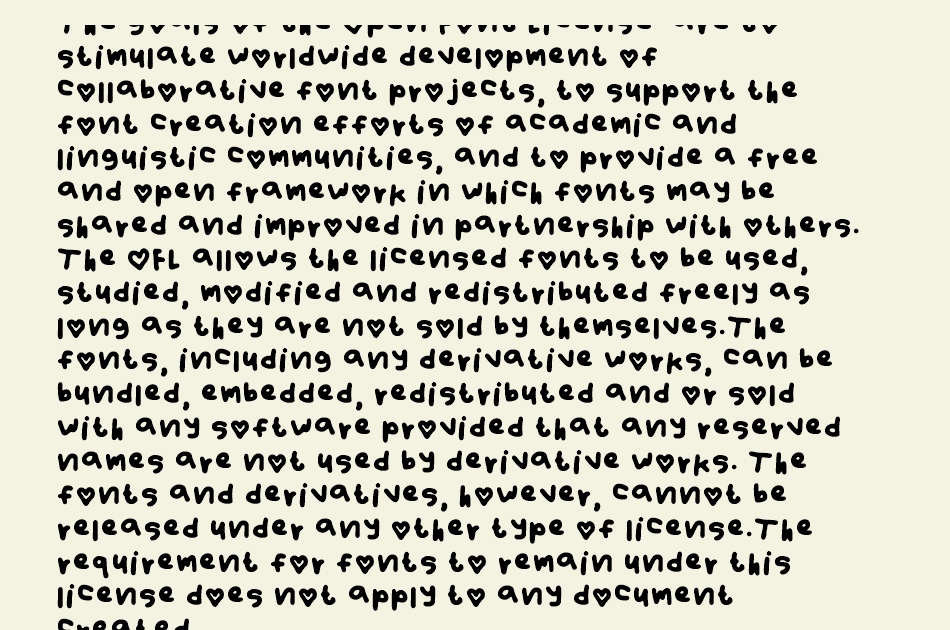 The goals of the Open Font License are to
stimulate worldwide development of
collaborative font projects, to support the
font creation efforts of academic and
linguistic communities, and to provide a free
and open framework in which fonts may be
shared and improved in partnership with others.
The OFL allows the licensed fonts to be used,
studied, modified and redistributed freely as
long as they are not sold by themselves.The
fonts, including any derivative works, can be
bundled, embedded, redistributed and or sold
with any software provided that any reserved
names are not used by derivative works. The
fonts and derivatives, however, cannot be
released under any other type of license.The
requirement for fonts to remain under this
license does not apply to any document
created